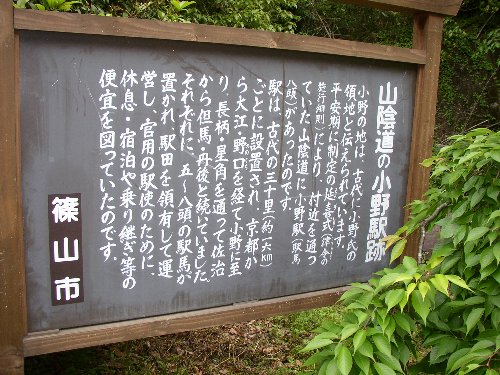 山陰道の小野駅跡
小野の地は、古代に小野氏の
領地と伝えられています。
平安期に制定の延喜式(律令の
施行細則)により、村近を通っ
ていた山陰道に小野駅(駅馬
八頭)があったのです。
駅は、古代の三十里(約一六km)
ごとに設置され、京都か
ら大江・野口を経て小野に至
り、長柄・星角を通って佐治
から但馬・丹後と続いていました。
それぞれに、五〜八頭の駅馬が
置かれ、駅田を領有して運
営し、官用の駅使のために、
休息・宿泊や乗り継ぎ等の
便宜を図っていたのです。
篠山市